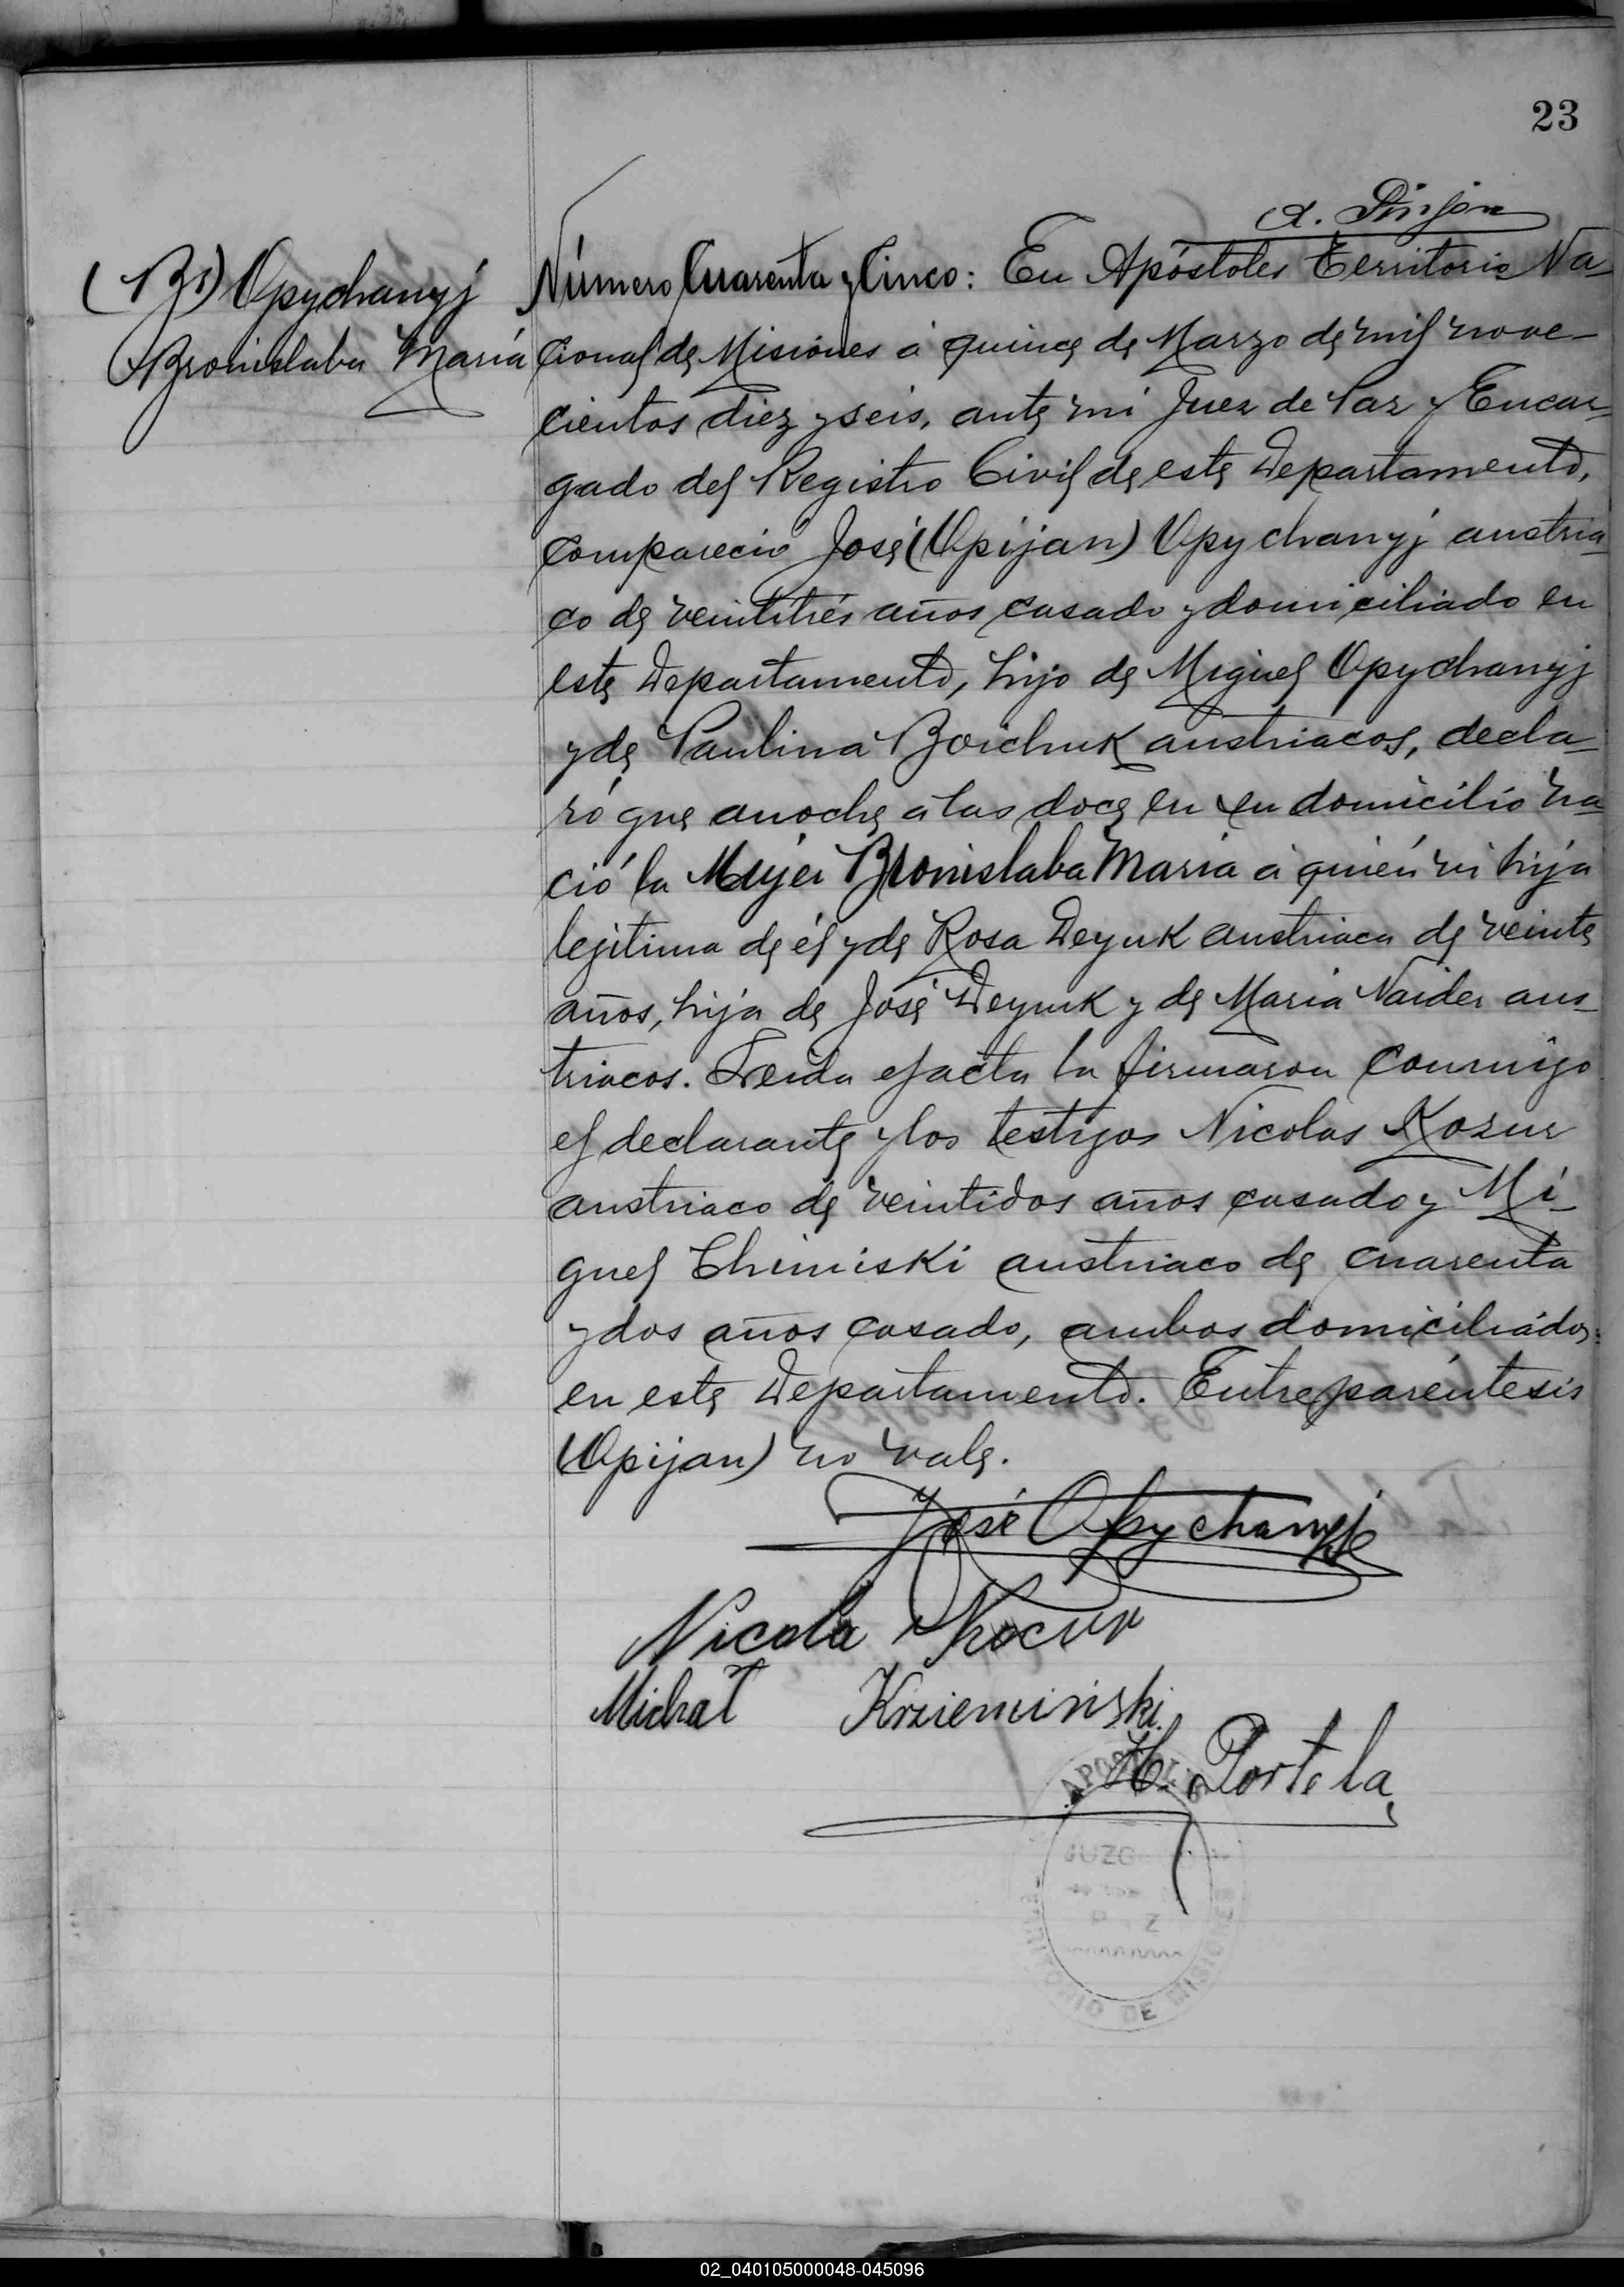 23
(Bis) Opychanyj
Bronislaba María
Número Cuarenta y Cinco: En Apóstoles Territorio Na-
cional de Misiones á quince de Marzo de mil nove-
cientos diez y seis, ante mi Juez de Paz y Encar-
gado del Registro Civil de este Departamento,
compareció José (Opijan) Opychanyj austria-
co de veintitrés años casado y domiciliado en
este Departamento, hijo de Miguel Opychanyj
y de Paulina Boichuk austriacos, decla-
ró que anoche a las doce en su domicilio na-
ció la Mujer Bronislaba María á quién vi hija
lejitima de él y de Rosa Deyuk austriaca de veinte
años, hija de José Deyuk y de María Naider aus-
triacos. Leida el acta la firmaron conmigo
el declarante y los testigos Nicolas Kozur
austriaco de veintidos años casado y Mi-
guel Chiminski austriaco de cuarenta
y dos años casado, ambos domiciliados
en este Departamento. Entre paréntesis
(Opijan) no vale.
José Opychanyj
Nicola Kocur
Michał Krzieminiski
H. Portela
APOSTOLES
JUZG
P Z
TERRITORIO DE MISIONES
02_040105000048-045096